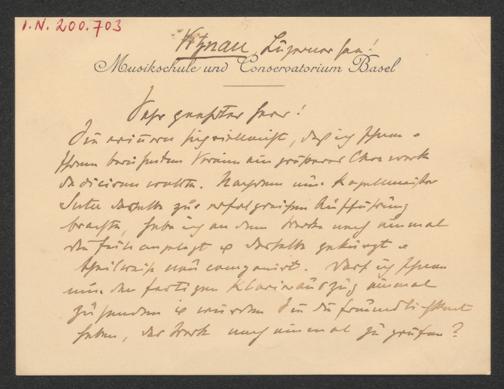 I.N. 200.703
Vitznau, Luzerner See!
Musikschule und Conservatorium Basel
Sehr geehrter Herr!
Sie erinnern sich vielleicht, daß ich Ihnen u
Ihrem berühmten Verein ein größeres Chorwerk
dedicieren wollte. Nachdem nun Kapellmeister
Suter dasselbe zur erfolgreichen Aufführung
brachte, habe ich an dem Werke noch einmal
die Feile angelegt u dasselbe gekürzt u
theilweise neu componirt. Darf ich Ihnen
nun den fertigen Klavierauszug einmal
zusenden u würden Sie die Freundlichkeit
haben, das Werk noch einmal zu prüfen?